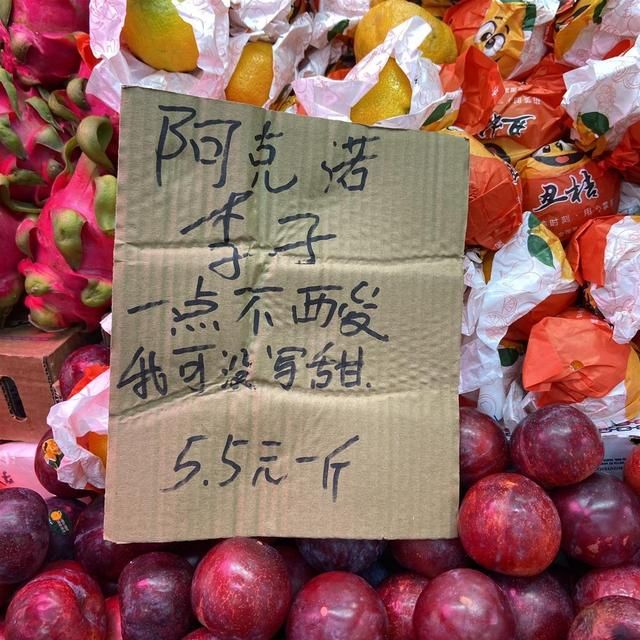 阿克诺
李子
一点不酸
我可没写甜.
5.5元一斤
丑桔